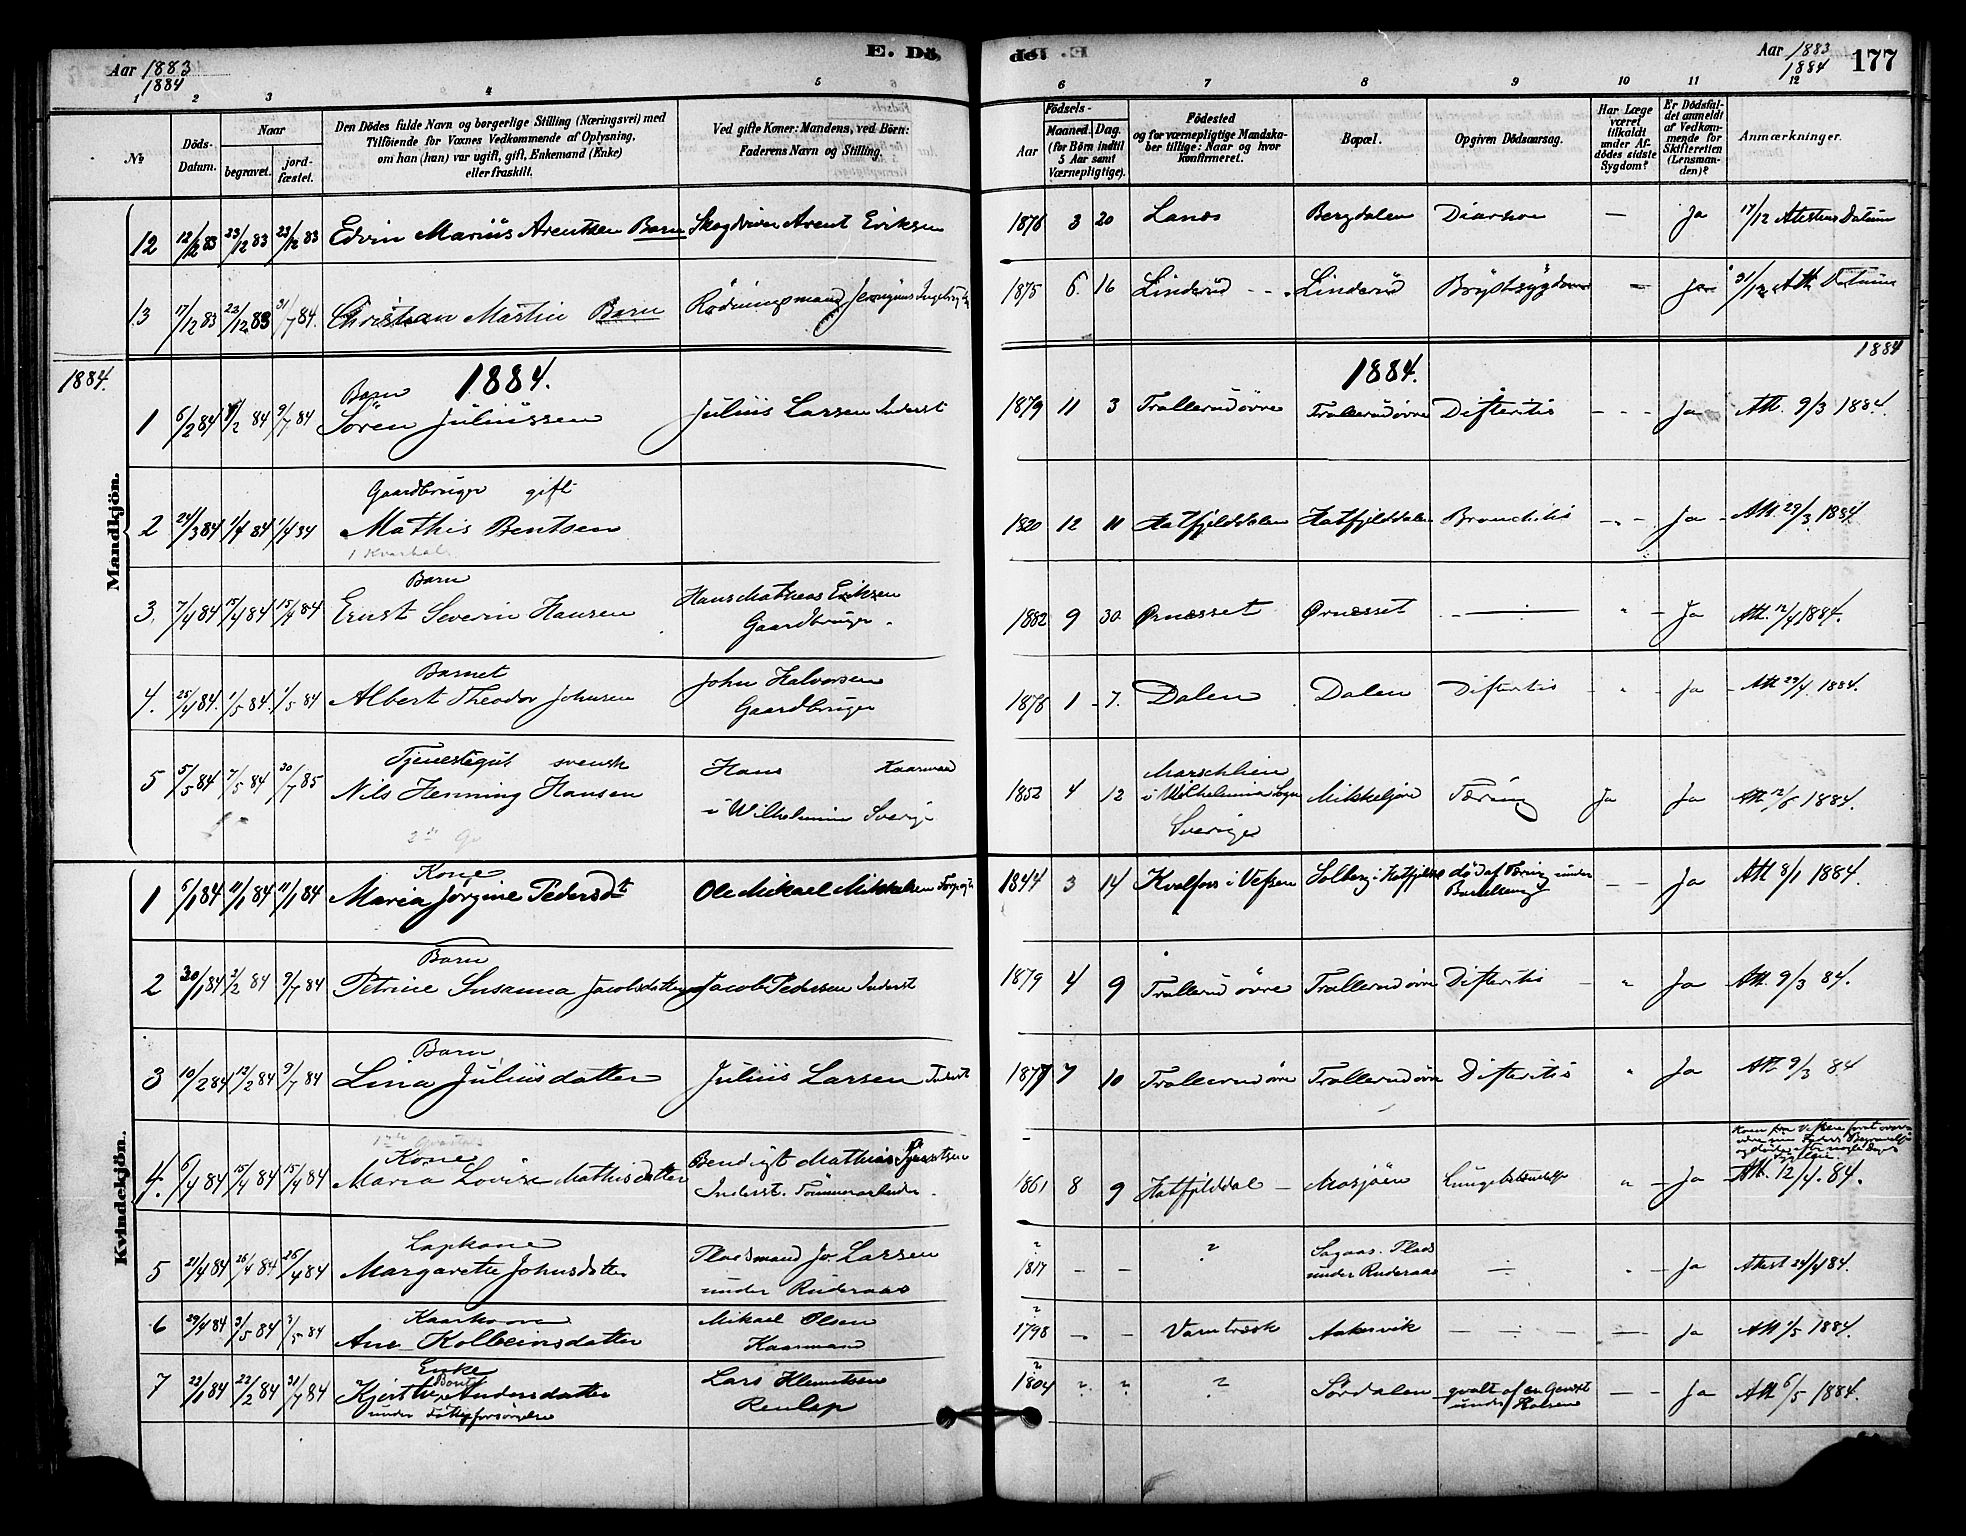 Aar 1883
1884
E. Dö-
de.
Aar 1883
1884
177
1 2 3 4 5 6 7 8 9 10 11 12
№
Döds-Datum.
Naar
begravet.
jord-fæstet.
Den Dödes fulde Navn og borgerlige Stilling (Næringsvei) med
Tilföiende for Voxnes Vedkommende af Oplysning,
om han (hun) var ugift, gift, Enkemand (Enke)
eller fraskilt.
Ved gifte Koner: Mandens, ved Börn:
Faderens Navn og Stilling.
Födsels-
Aar
Maaned. Dag.
(for Börn indtil
5 Aar samt
Værnepligtige).
Födested
og for værnepligtige Mandska-
ber tillige: Naar og hvor
konfirmeret.
Bopæl.
Opgiven Dödsaarsag.
Har Læge
været
tilkaldt
under Af-
dödes sidste
Sygdom?
Er Dödsfal-
det anmeldt
af Vedkom-
mende for
Skifteretten
(Lensman-
den)?
Anmærkninger.
12 12/12 83 23/12 83 23/12 83 Edvin Marius Arentsen Barn Arent Eriksen 1876 3 20 Bergdalen — Ja 17/12 Attestens Datum
13 17/12 83 23/12 83 31/7 84. Christian Martin Barn Rödningsmand 1875 6. 16 Linderud Linderud Brystsygdom — Ja 31/12 Att. Datum
1884.
1884.
1884.
1884
Mandkjön.
Barn
1 6/2 84 84 9/7 84 Sören Juliussen Julius Larsen Inderst 1879 11 3 Trallerud övre Trallerud övre Difteritis - - - Ja Att. 9/3 1884.
Gaardbruger gift
2 24/3 84 1/4 84 1/4 84 Mathis Bentsen 1820 12 11 Hatfjelddalen Hatfjelddalen Bronchitis - " - Ja Att 29/3 1884
1 Kvartal
Barn Hans Mathias Eriksen
3. 7/4 84 15/4 84 15/4 84 Ernst Severin Hansen Gaardbruger. 1882 9 30. Ørnæsset Ørnæsset - " - Ja Att. 12/4 1884.
Barnet John Halvorsen
4. 25/4 84. 1/5 84. 1/5 84 Albert Theodor Johnsen Gaardbruger 1878 1 7. Dalen Dalen Difteritis - " - Ja Att 29/4. 1884.
Tjenestegut svensk Hans Kaarmand
5 5/5 84 7/5 84 20/7 85 Nils Henning Hansen i Wilhelmina Sverige 1852 4 12 Marschlien
i Wilhelmina Sogn
Sverige
Mikkeljord Tæring Ja Ja 1884.
Kvindekjön.
Kone
1 5/1 84 11/1 84 11/1 84 Maria Jörgine Pedersdt Ole Mikael Mikkelsen 1844 3 14 Kvalfors i Vefsen Solberg i Hatfjeld död af Tæring under
Barselseng - - Ja Att 8/1 1884.
Barn
2 30/1 84 2/2 84 9/7 84 Petrine Susanna Jacobsdatter Jacob Pedersen Inderst 1879 4 9 Trallerud övre Trallerud övre Difteritis - " - Ja Att. 9/3 84.
Barn
3 10/2 84 12/2 84 9/7 84 Lina Juliusdatter Julius Larsen Inderst 1877 7 10 Trallerud övre Trallerud övre Difteritis " Ja Att 9/3 84.
Kone
4. 6/4 84 15/4 84 15/4 84 Maria Lovise Mathisdatter Bendigt Mathias
Inderst. Tömmerarbeider. 1861 8 9 Hatfjelddal - Mosjöen Lungebetændelse " - Ja Att. 12/4. 84.
Lapkone
5 21/4 84 26/4 84 26/4 84 Margarette Johnsdatter Pladsmand Jo. Larsen
under Ruderaas ? 1817 — — ? Sagaas. Plads
under Ruderaas ÷ " - Ja Attest 24/4 84.
Kaarkone
6 29/4 84 3/5 84 3/5 84 Ane Kolbeinsdatter Mikael Olsen
Kaarmand ? 1798 — — Varntræsk Aakervik — ÷ — — Ja Att 1/5 1884.
Enke
7 22/1 84 22/2 84 31/7 84 Kjersti Andersdatter
under Fattigforsörgelse
Lars Klemetsen
Renlap
? 1804 " " ? Sördalen qvalt af en Genist
under — — Ja Att 6/5 1884.